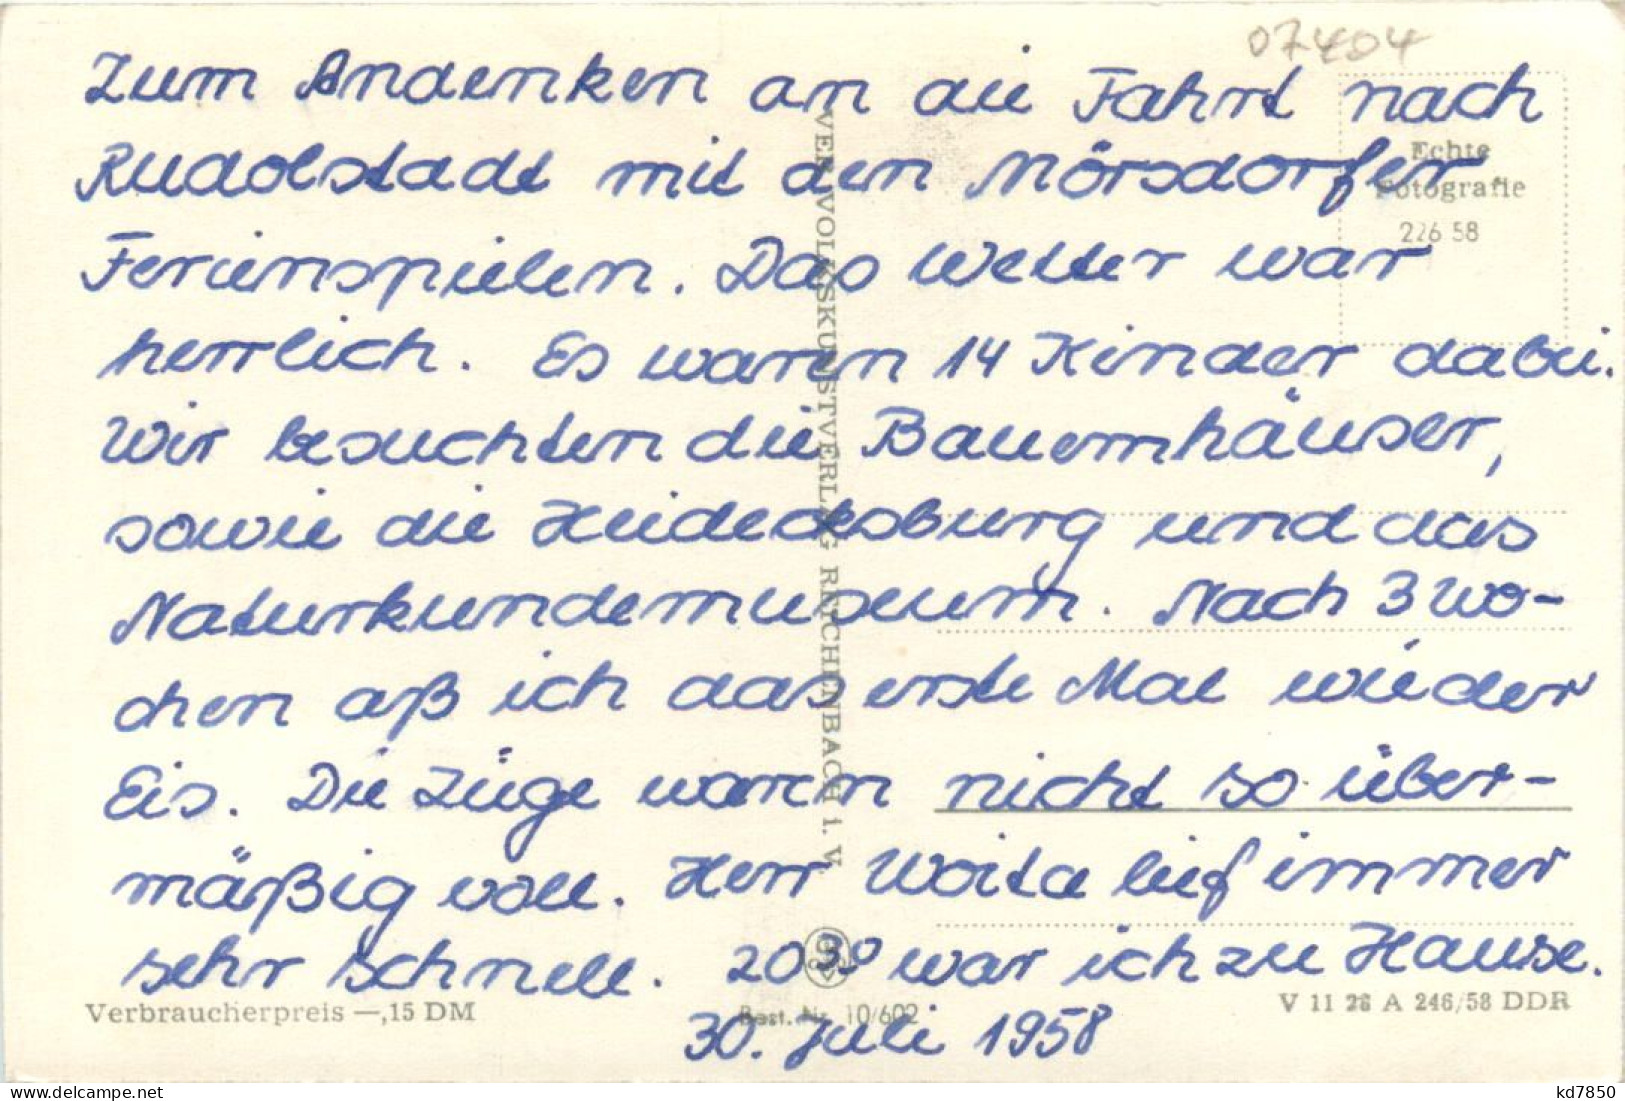 07404
Zum Andenken an die Fahrt nach
Rudolstadt mit den Mörsdorfer
Ferienspielen. Das Wetter war
herrlich. Es waren 14 Kinder dabei.
Wir besuchten die Bauernhäuser,
sowie die Heidecksburg und das
Naturkundemuseum. Nach 3 Wo-
chen aß ich das erste Mal wieder
Eis. Die Züge waren nicht so über-
mäßig voll. Herr Woita lief immer
sehr schnell. 20³⁰ war ich zu Hause.
30. Juli 1958
Echte
Fotografie
226 58
VEB VOLKSKUNSTVERLAG REICHENBACH i. V.
Verbraucherpreis —,15 DM
Best. Nr. 10/602
V 11 28 A 246/58 DDR
delcampe.net
kd7850